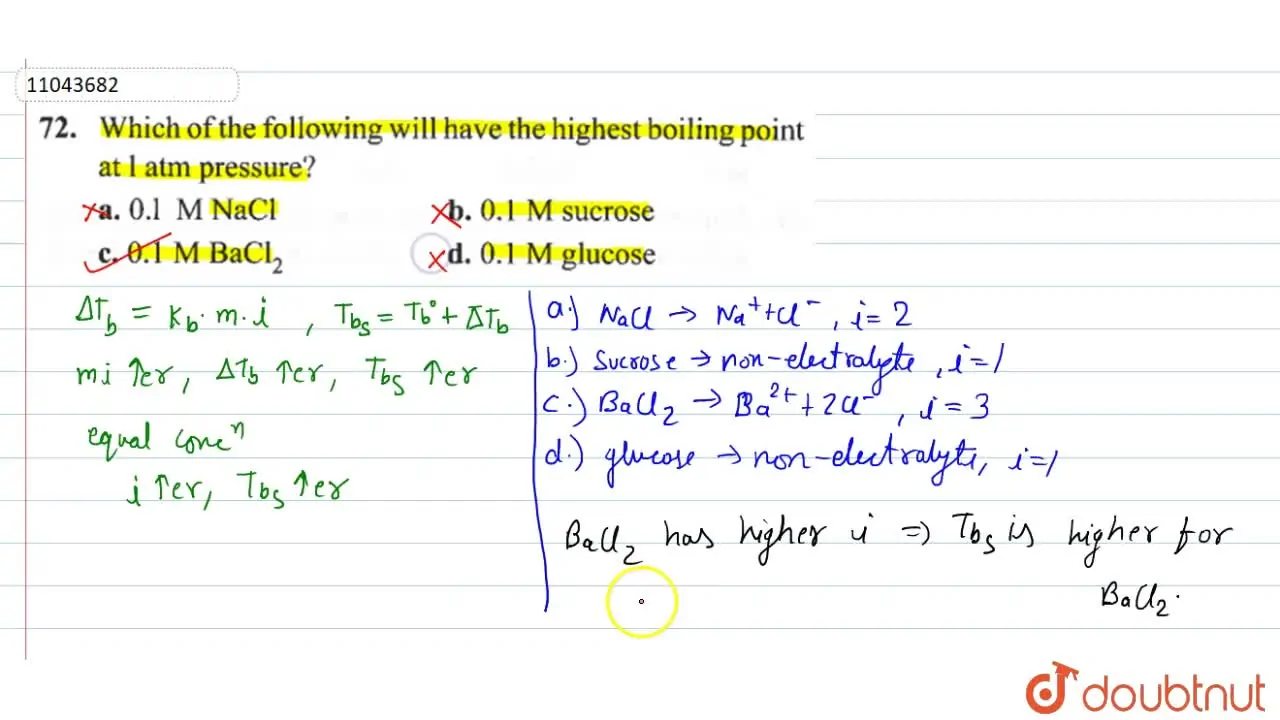 11043682
72. Which of the following will have the highest boiling point
at 1 atm pressure?
a. 0.1 M NaCl
b. 0.1 M sucrose
c. 0.1 M BaCl₂
d. 0.1 M glucose
ΔT_b = K_b · m · i , T_bs = T_b° + ΔT_b
m.i ↑er, ΔT_b ↑er, T_bs ↑er
equal concⁿ
i ↑er, T_bs ↑er
a.) NaCl → Na⁺ + Cl⁻, i = 2
b.) Sucrose → non-electralyte, i = 1
c.) BaCl₂ → Ba²⁺ + 2Cl⁻, i = 3
d.) glucose → non-electralyte, i = 1
BaCl₂ has higher i ⇒ T_bs is higher for
BaCl₂.
doubtnut